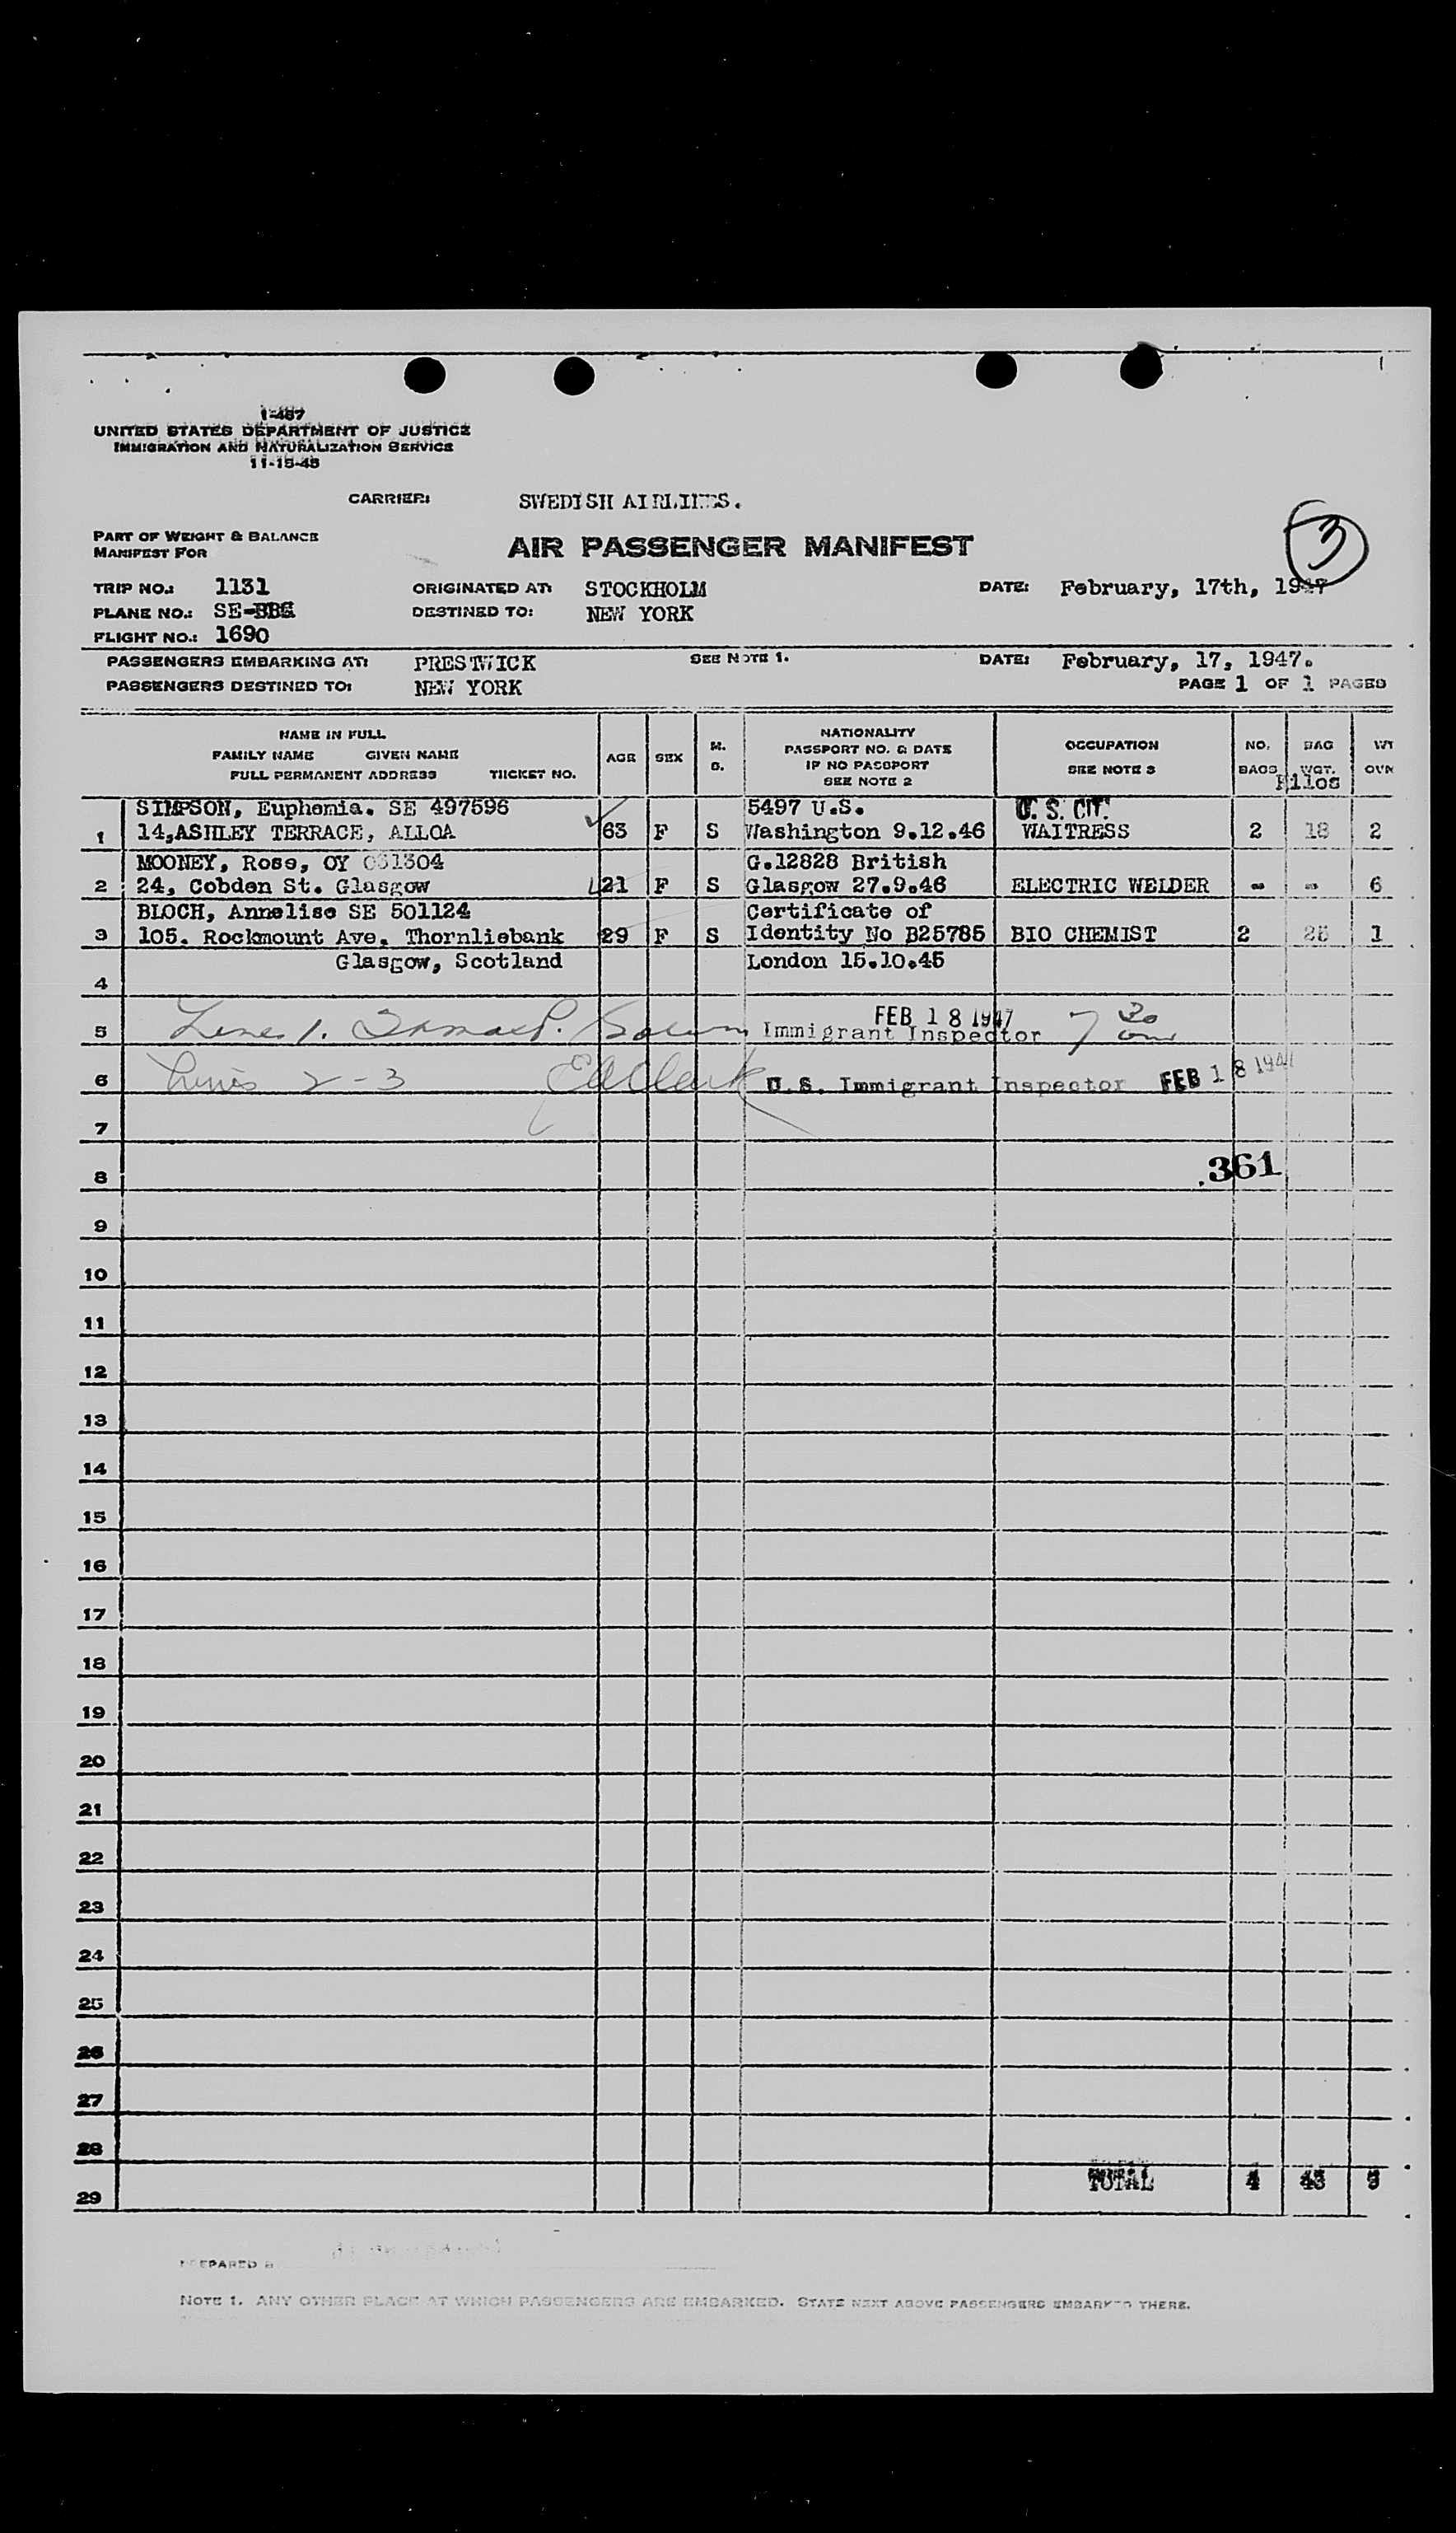 I-467
UNITED STATES DEPARTMENT OF JUSTICE
IMMIGRATION AND NATURALIZATION SERVICE
11-15-45
CARRIER: SWEDISH AIRLINES.
3
PART OF WEIGHT & BALANCE
MANIFEST FOR
AIR PASSENGER MANIFEST
TRIP NO.: 1131 ORIGINATED AT: STOCKHOLM DATE: February, 17th, 1947
PLANE NO.: SE- DESTINED TO: NEW YORK
FLIGHT NO.: 1690
PASSENGERS EMBARKING AT: PRESTWICK SEE NOTE 1. DATE: February, 17, 1947.
PASSENGERS DESTINED TO: NEW YORK PAGE 1 OF 1 PAGES
NAME IN FULL
FAMILY NAME GIVEN NAME
FULL PERMANENT ADDRESS TICKET NO.
AGE SEX M. S.
NATIONALITY
PASSPORT NO. & DATE
IF NO PASSPORT
SEE NOTE 2
OCCUPATION
SEE NOTE 3
NO. BAGS
BAG WGT.
Kilos
SIMPSON, Euphemia. SE 497596 5497 U.S. U.S. CIT.
1 14,ASHLEY TERRACE, ALLOA 63 F S Washington 9.12.46 WAITRESS 2 18 2
MOONEY, Rose, OY 031304 G.12828 British
2 24, Cobden St. Glasgow 21 F S Glasgow 27.9.46 ELECTRIC WELDER - - 6
BLOCH, Annelise SE 501124 Certificate of
3 105. Rockmount Ave. Thornliebank 29 F S Identity No B25785 BIO CHEMIST 2 25 1
Glasgow, Scotland London 15.10.45
4
FEB 18 1947
5 Lines 1. Immigrant Inspector 7 30
6 Lines 2-3 E A Clark U.S. Immigrant Inspector FEB 18 1947
7
361
8
9
10
11
12
13
14
15
16
17
18
19
20
21
22
23
24
25
26
27
28
TOTAL 4 43 9
29
PREPARED B
NOTE 1. ANY OTHER PLACE AT WHICH PASSENGERS ARE EMBARKED. STATE NEXT ABOVE PASSENGERS EMBARKED THERE.